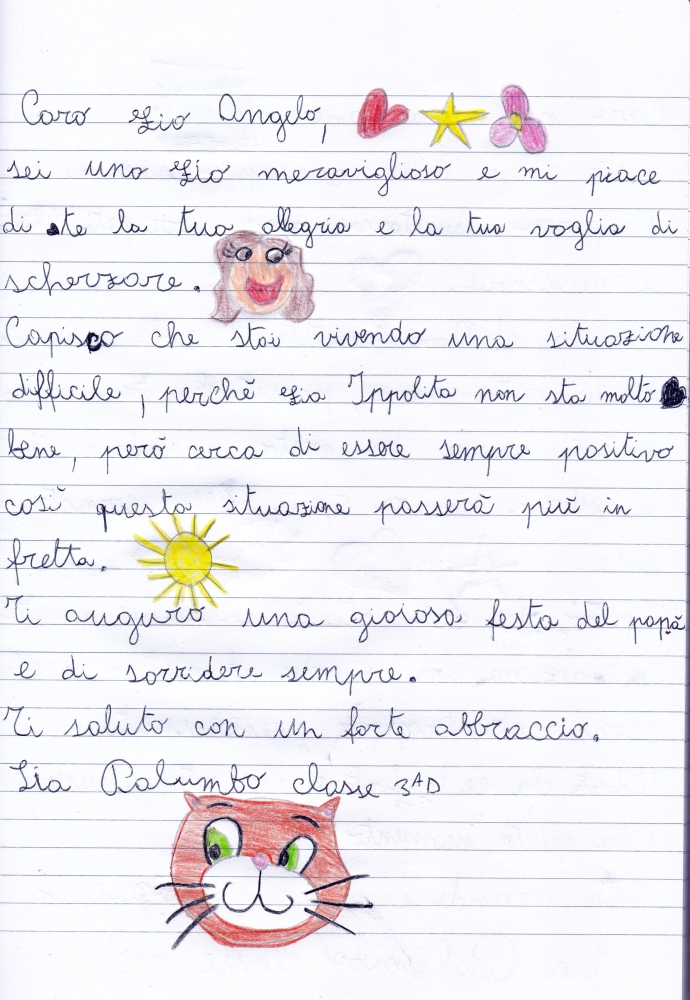 Caro zio Angelo,
sei uno zio meraviglioso e mi piace
di te la tua allegria e la tua voglia di
scherzare.
Capisco che stai vivendo una situazione
difficile, perché zia Ippolita non sta molto
bene, però cerca di essere sempre positivo
così questa situazione passerà più in
fretta.
Ti auguro una gioiosa festa del papà
e di sorridere sempre.
Ti saluto con un forte abbraccio.
Lia Palumbo classe 3ᴬD